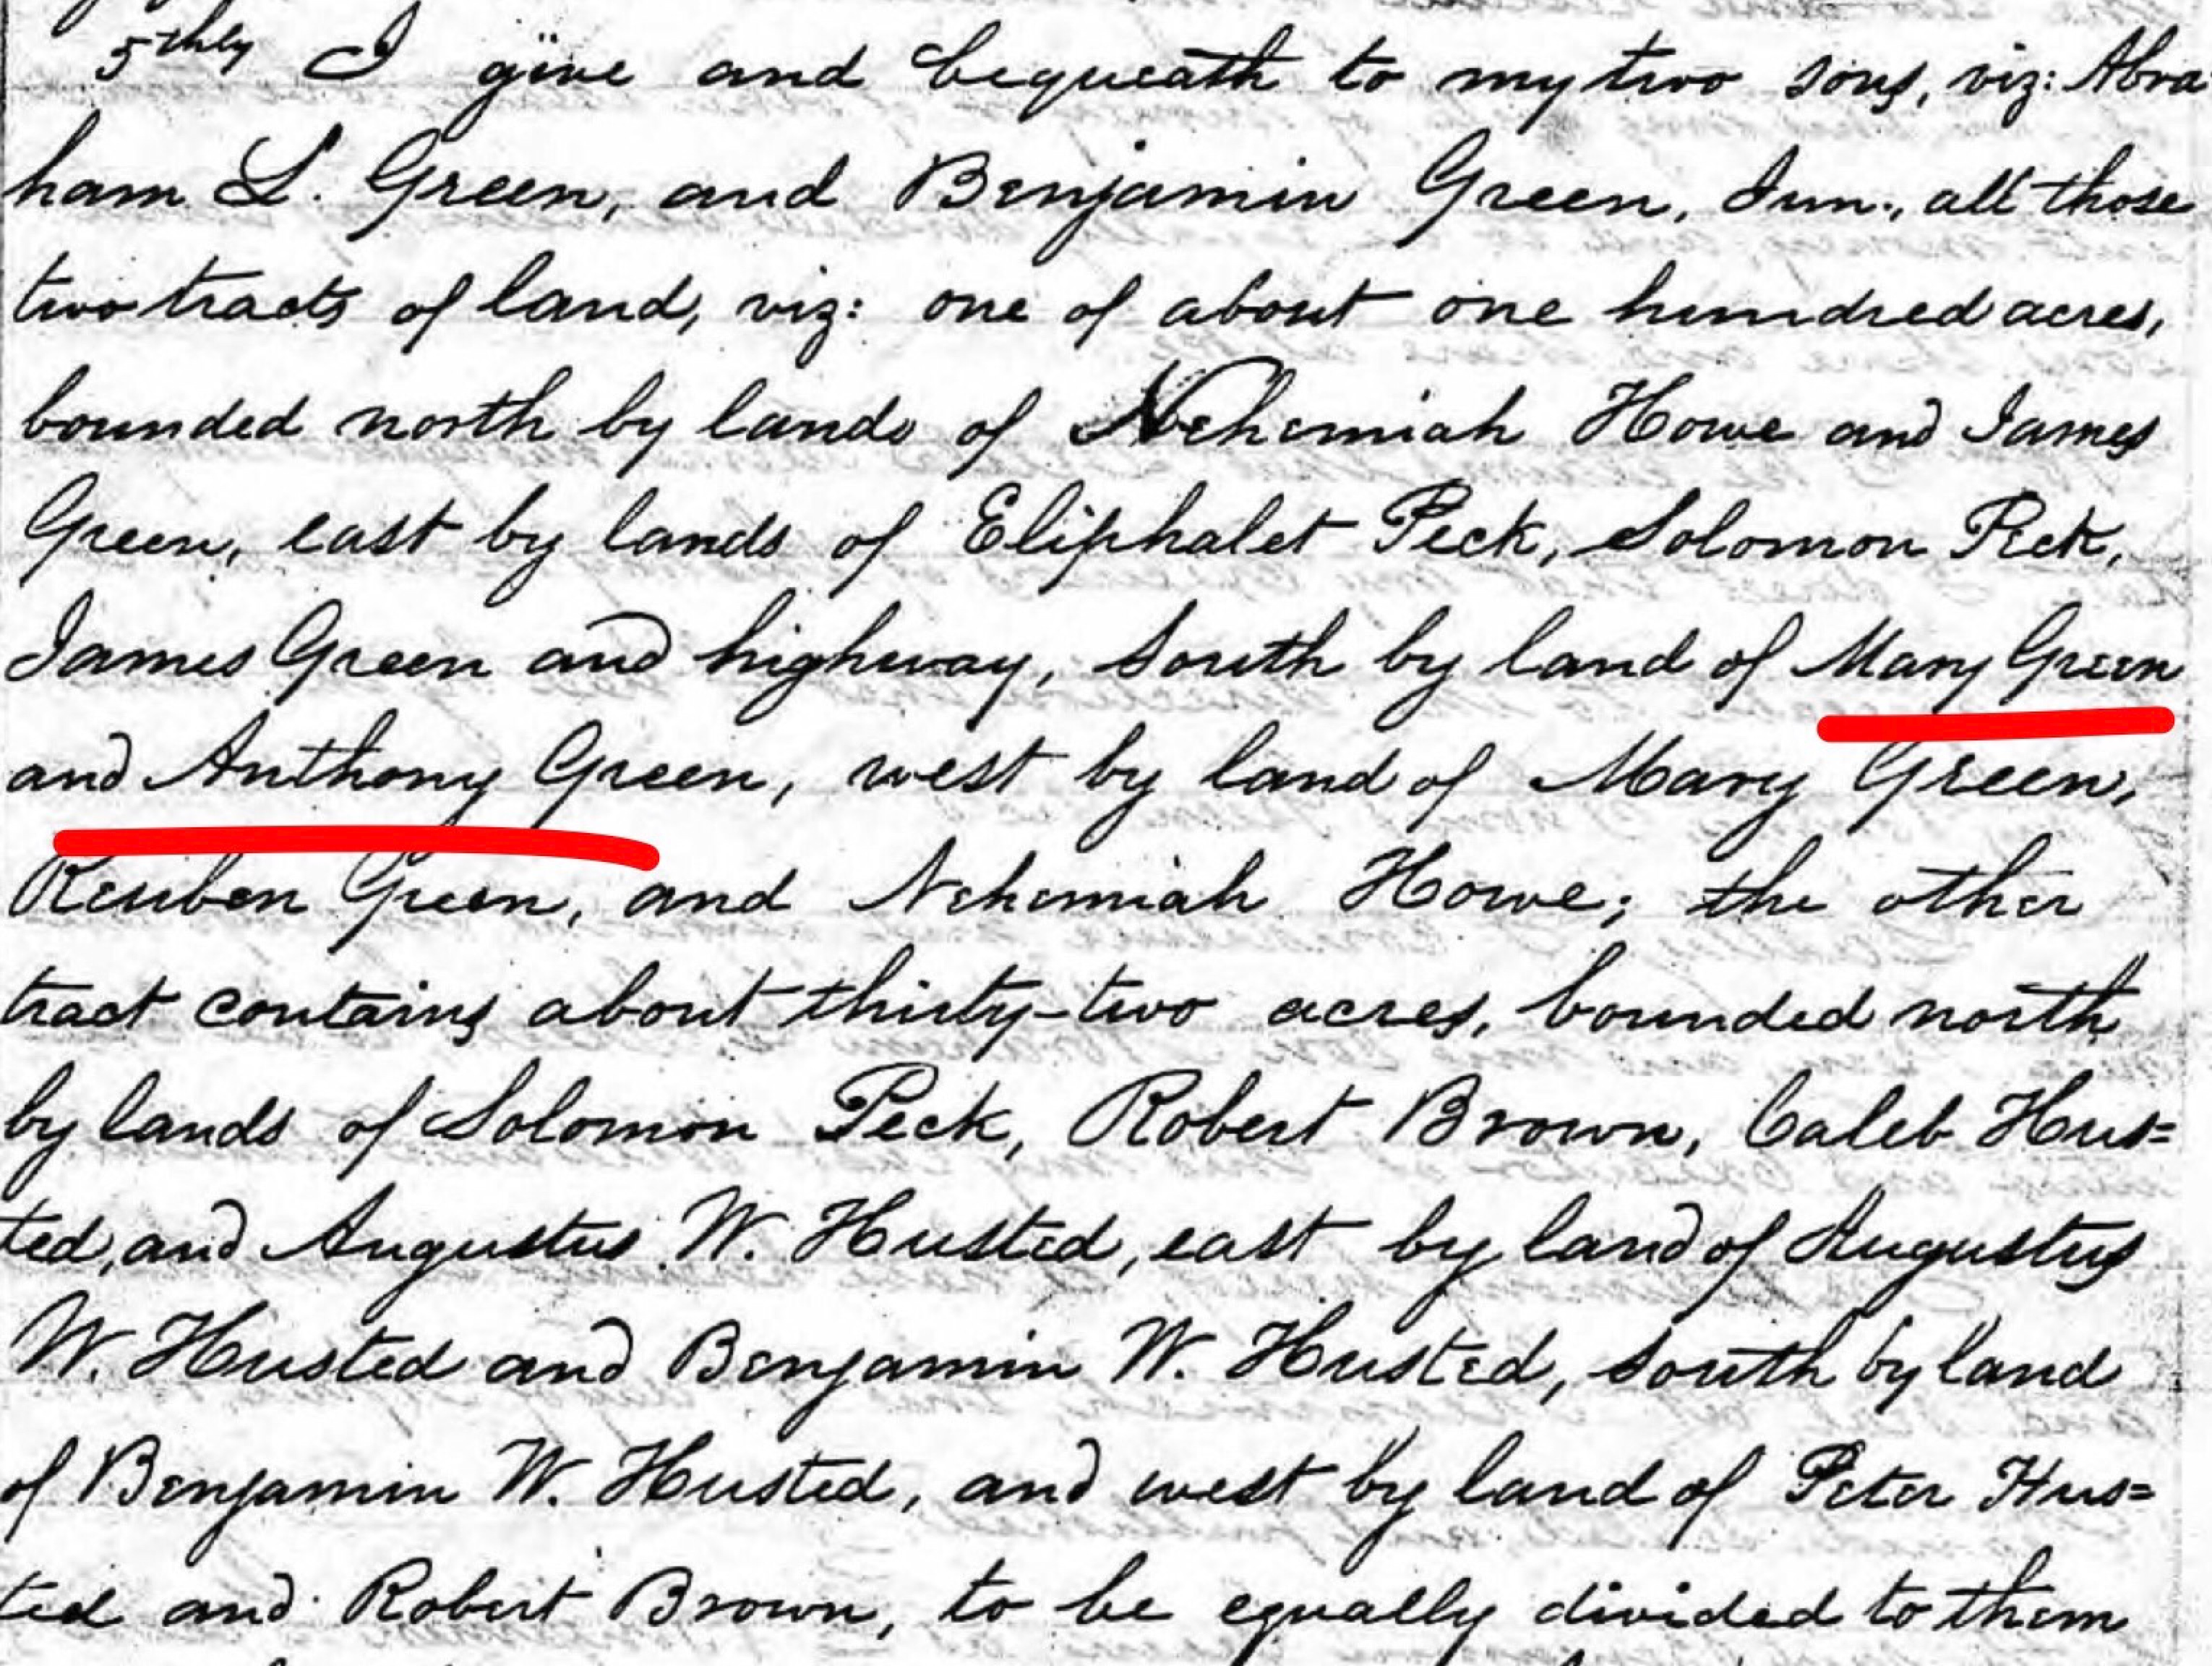 5thly I give and bequeath to my two sons, viz: Abra
ham L. Green, and Benjamin Green, Jun., all those
two tracts of land, viz: one of about one hundred acres,
bounded north by lands of Nehemiah Howe and James
Green, east by lands of Eliphalet Peck, Solomon Peck,
James Green and highway, South by land of Mary Green
and Anthony Green, west by land of Mary Green,
Reuben Green, and Nehemiah Howe; the other
tract contains about thirty-two acres, bounded north
by lands of Solomon Peck, Robert Brown, Caleb Hus=
ted, and Augustus W. Husted, east by land of Augustus
W. Husted and Benjamin W. Husted, south by land
of Benjamin W. Husted, and west by land of Peter Hus=
ted and Robert Brown, to be equally divided to them